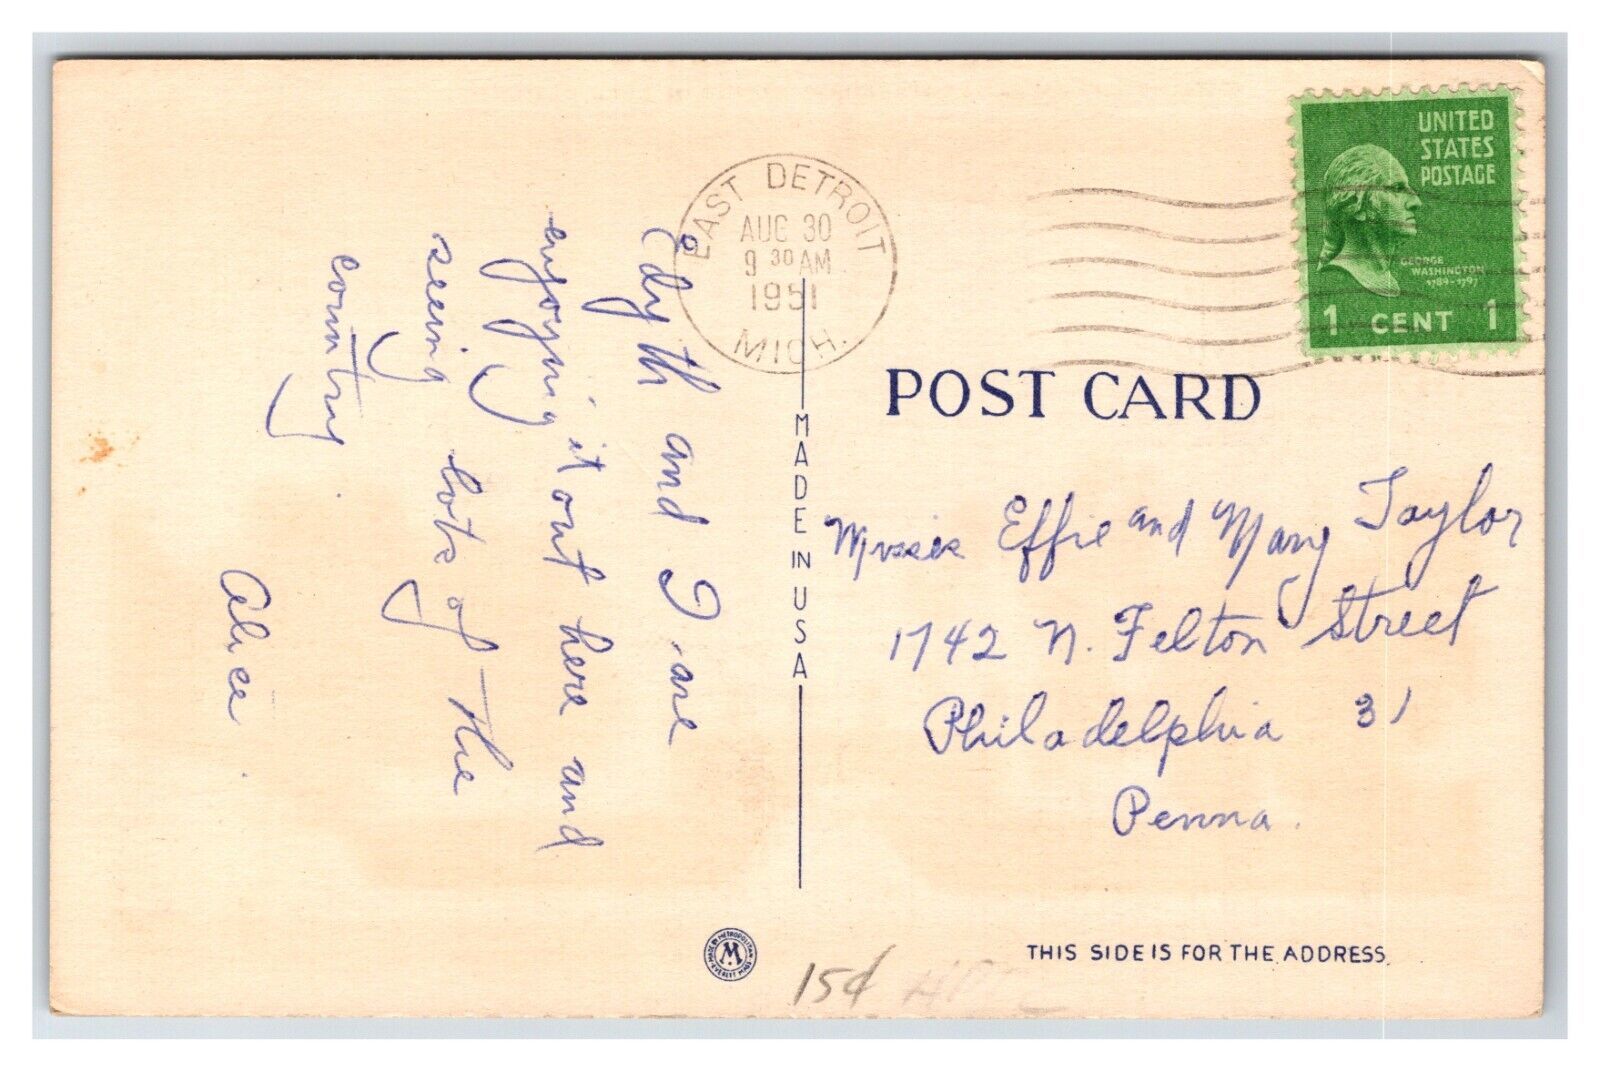 Edyth and I are
enjoying it out here and
seeing lots of the
country.
Alice.
EAST DETROIT
AUG 30
9 30 AM
1951
MICH.
UNITED
STATES
POSTAGE
GEORGE
WASHINGTON
1789-1797
1 CENT 1
POST CARD
MADE IN USA
Misses Effie and Mary Taylor
1742 N. Felton Street
Philadelphia 31
Penna.
MADE BY METROPOLITAN
M
EVERETT MASS
THIS SIDE IS FOR THE ADDRESS
15¢